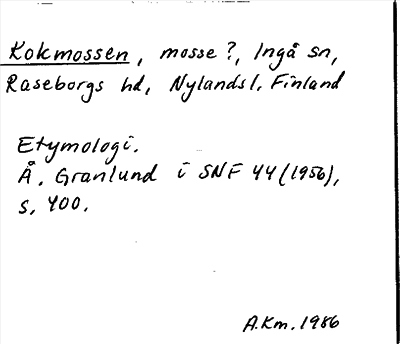 Kokmossen, mosse?, Ingå sn,
Raseborgs hd, Nylands l, Finland
Etymologi.
Å. Granlund i SNF 44 (1956),
s. 400.
A.Km. 1986